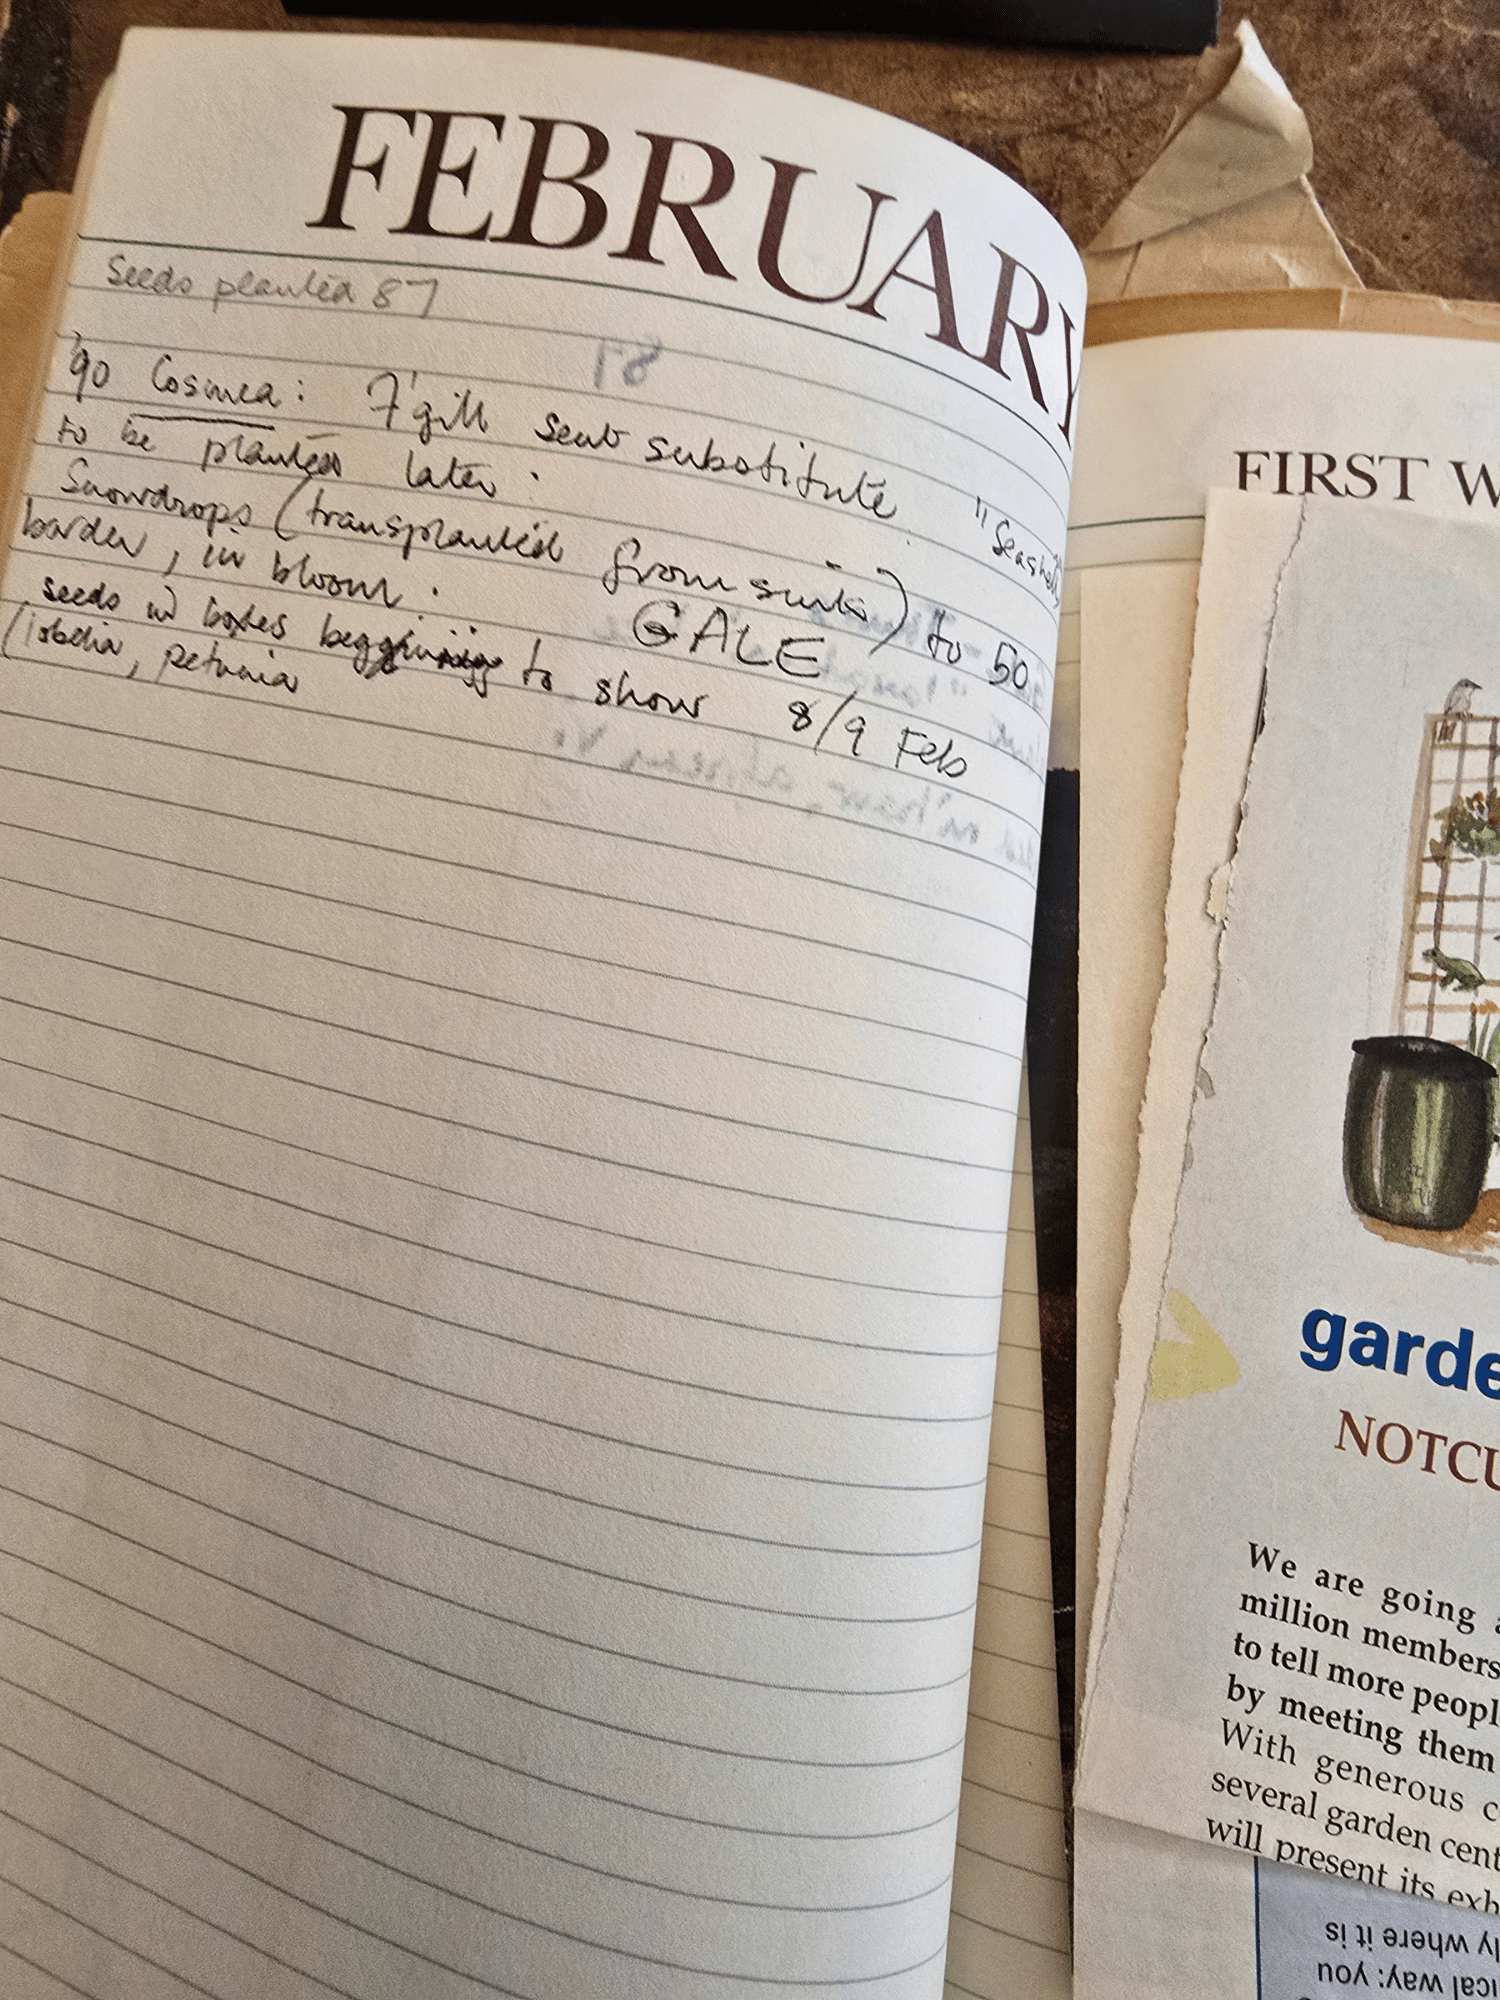 FEBRUARY
Seeds planted 87
'90 Cosmea: T'gill sent substitute. "Seashells"
to be planted later.
Snowdrops (transplanted from ) to 50
border, in bloom. GALE
seeds in boxes beggining to show 8/9 Feb
(lobelia, petunia
FIRST W
garde
NOTCU
We are going a
million members
to tell more peopl
by meeting them
With generous c
several garden cent
will present its exh
ly where it is
ical way: you